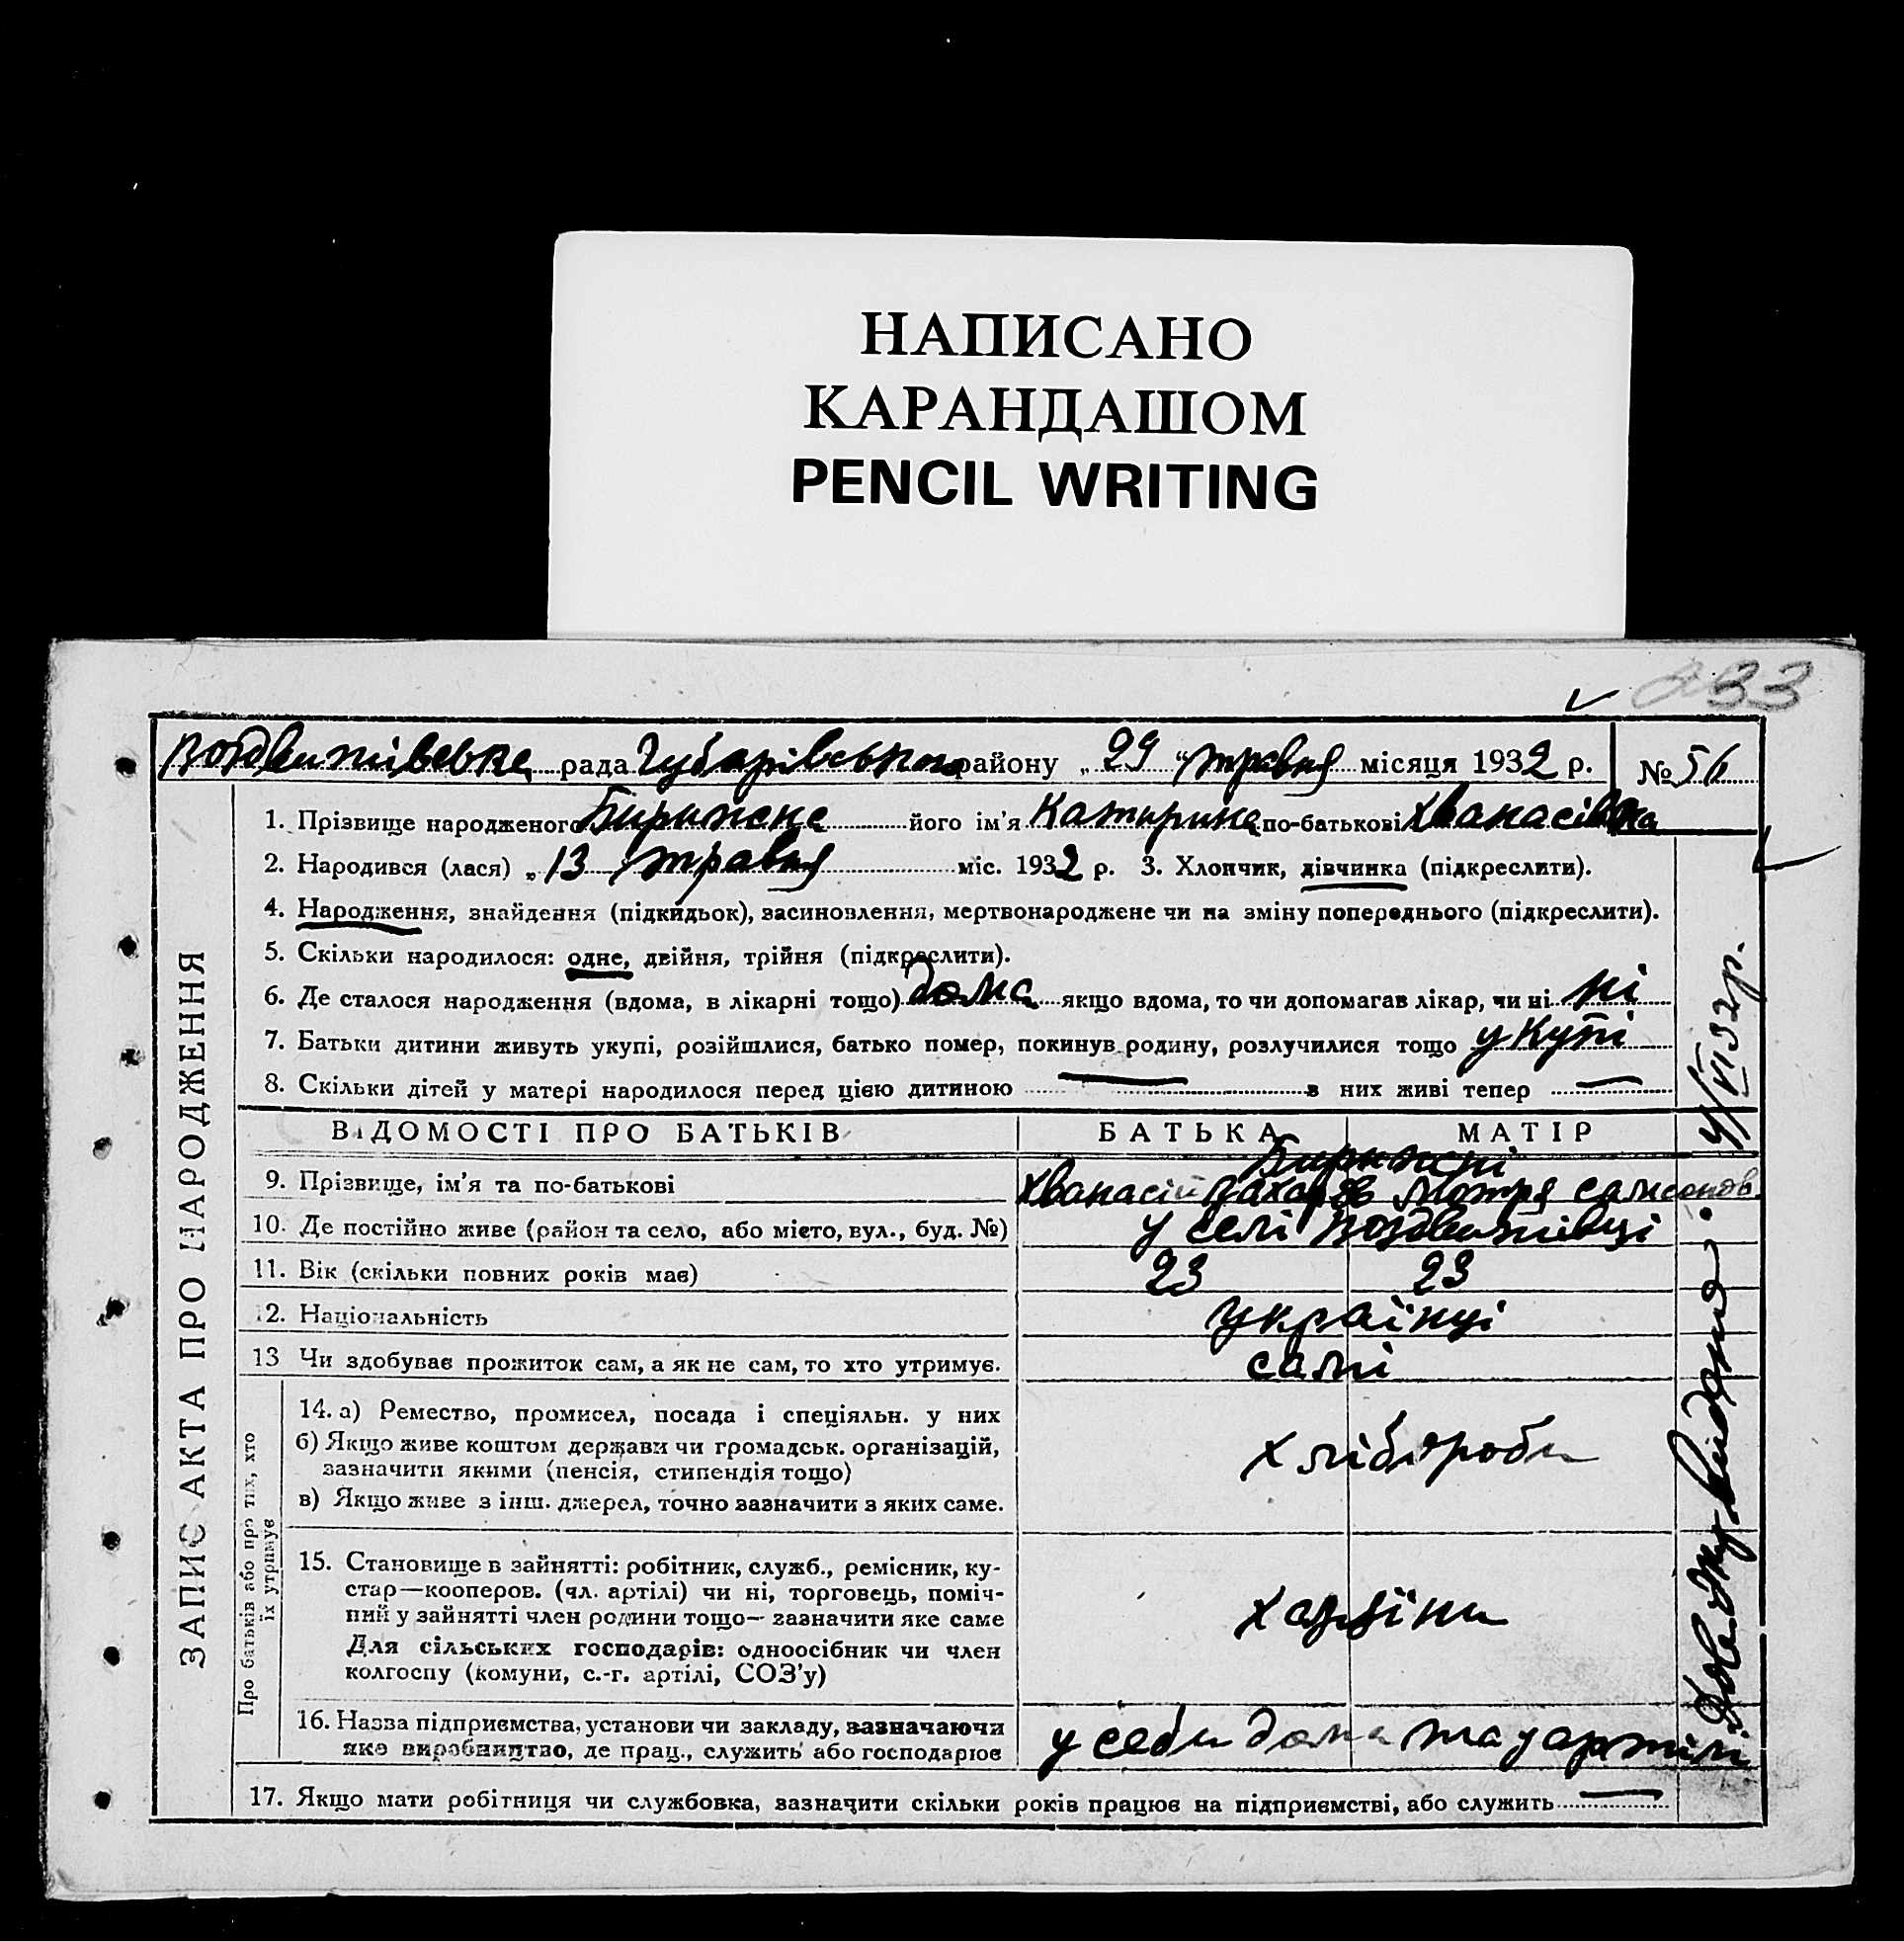 НАПИСАНО
КАРАНДАШОМ
PENCIL WRITING
233
Воздвижівська рада Чубарівського району „29“ травня місяця 1932 р. № 56
ЗАПИС АКТА ПРО НАРОДЖЕННЯ
1. Прізвище народженого Бирижна його ім'я Катирина по-батькові Хванасівна
2. Народився (лася) „13 травня міс. 1932 р. 3. Хлопчик, дівчинка (підкреслити).
4. Народження, знайдення (підкидьок), засиновлення, мертвонароджене чи на зміну попереднього (підкреслити).
5. Скільки народилося: одне, двійня, трійня (підкреслити).
6. Де сталося народження (вдома, в лікарні тощо) дома якщо вдома, то чи допомагав лікар, чи ні ні
7. Батьки дитини живуть укупі, розійшлися, батько помер, покинув родину, розлучилися тощо укупі
8. Скільки дітей у матері народилося перед цією дитиною — з них живі тепер —
ВІДОМОСТІ ПРО БАТЬКІВ БАТЬКА МАТІР
Бирижні
9. Прізвище, ім'я та по-батькові Хванасій Захаров Мотря Самсонов
10. Де постійно живе (район та село, або місто, вул., буд. №) у селі Воздвижівці
11. Вік (скільки повних років має) 23 23
12. Національність українці
13 Чи здобуває прожиток сам, а як не сам, то хто утримує. самі
Про батьків або про тих, хто
їх утримує
14. а) Ремество, промисел, посада і спеціяльн. у них
б) Якщо живе коштом держави чи громадськ. організацій,
зазначити якими (пенсія, стипендія тощо)
в) Якщо живе з інш. джерел, точно зазначити з яких саме.
хлібороби
15. Становище в зайнятті: робітник, служб., ремісник, ку-
стар—кооперов. (чл. артілі) чи ні, торговець, поміч-
ний у зайнятті член родини тощо— зазначити яке саме
Для сільських господарів: одноосібник чи член
колгоспу (комуни, с.-г. артілі, СОЗ'у)
хазяїни
16. Назва підприємства, установи чи закладу, зазначаючи
яке виробництво, де прац., служить або господарює
у себи дома та у артілі
17. Якщо мати робітниця чи службовка, зазначити скільки років працює на підприємстві, або служить —
Довідку видано. 4/VI 32 р.